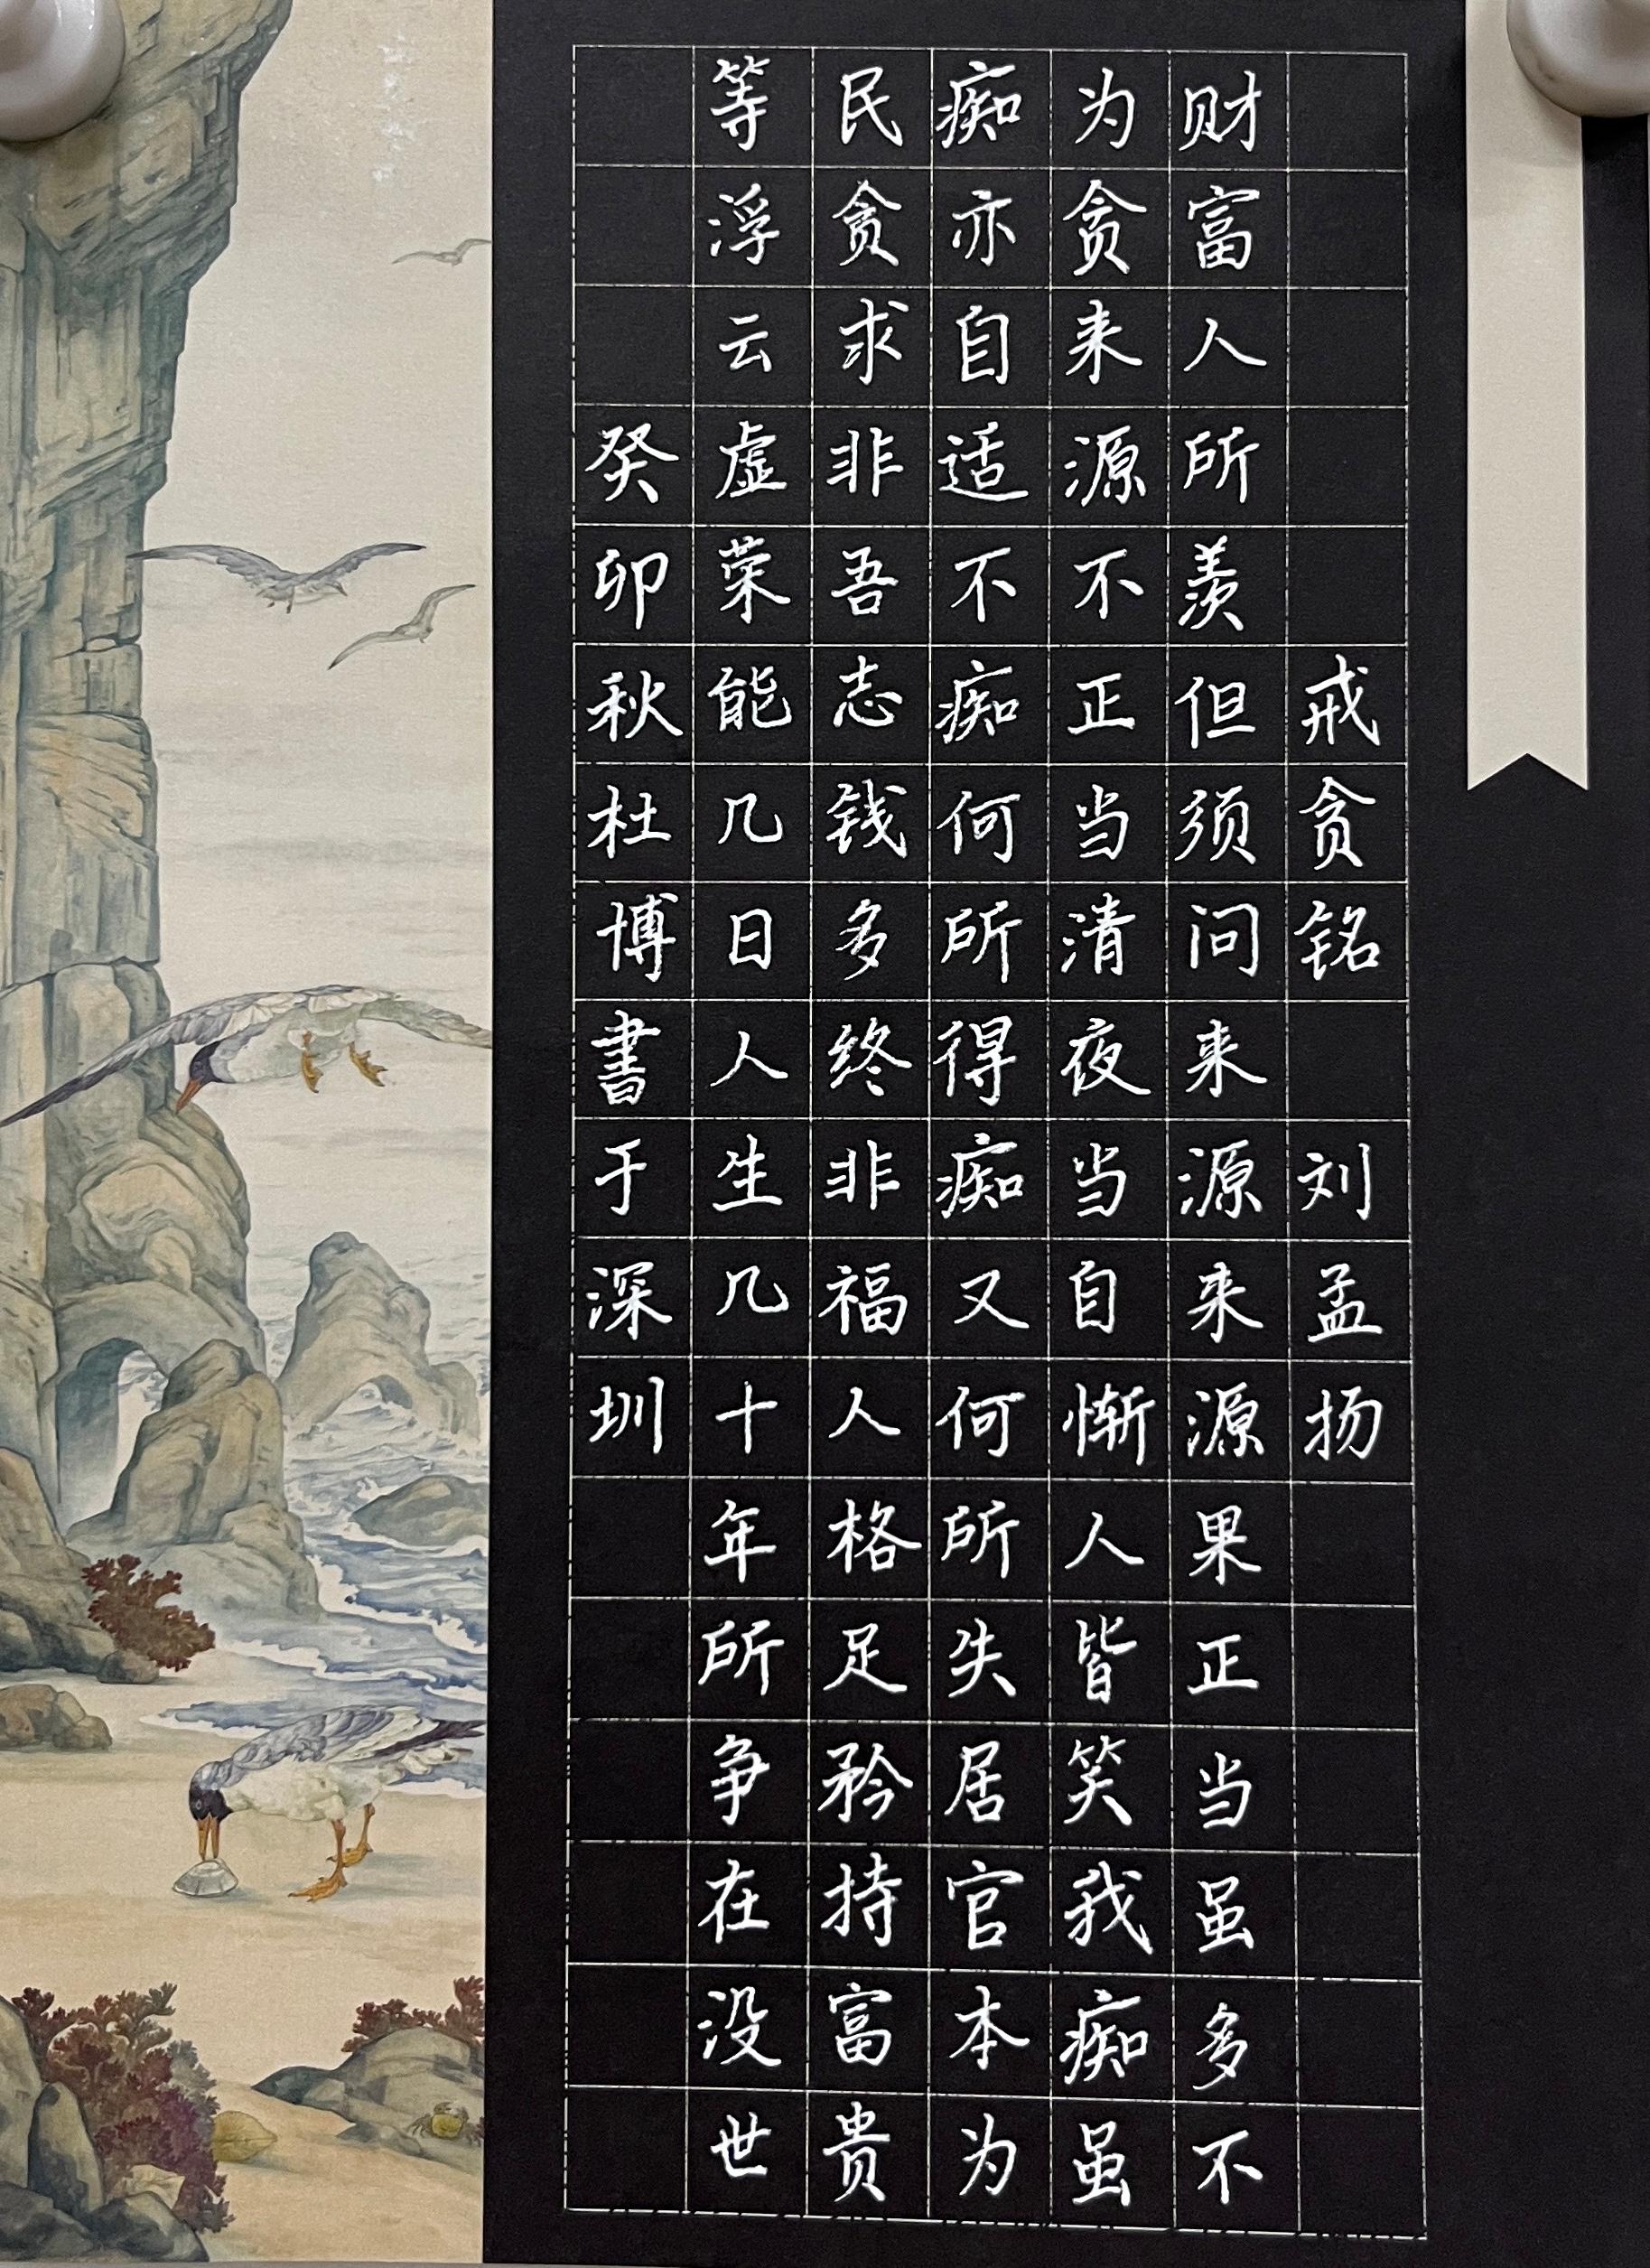 戒贪铭 刘孟扬
财富人所羡但须问来源来源果正当虽多不
为贪来源不正当清夜当自惭人皆笑我痴虽
痴亦自适不痴何所得痴又何所失居官本为
民贪求非吾志钱多终非福人格足矜持富贵
等浮云虚荣能几日人生几十年所争在没世
癸卯秋杜博書于深圳